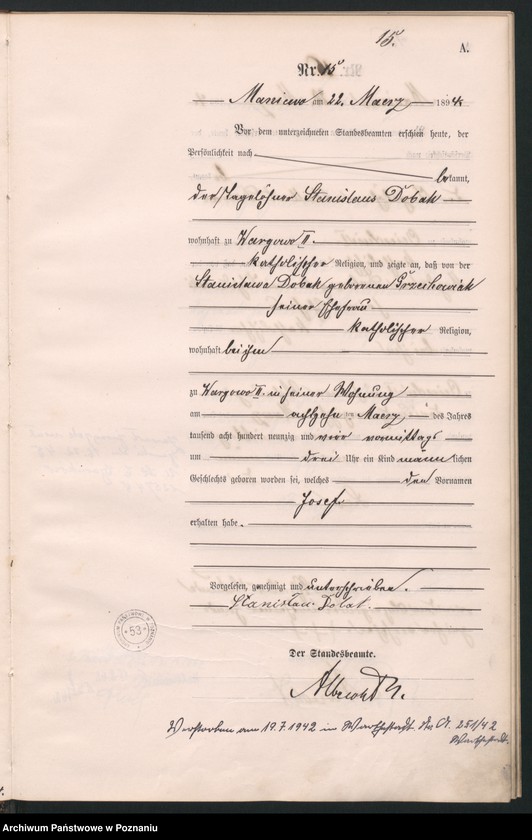 15.
A.
Nr. 15
Maniewo am 22. Maerz 1894
Vor dem unterzeichneten Standesbeamten erschien heute, der
Persönlichkeit nach
bekannt,
der Tagelöhner Stanislaus Dobak
wohnhaft zu Wargowo II.
katholischer Religion, und zeigte an, daß von der
Stanislawa Dobak geborenen
seiner Ehefrau
katholischer Religion,
wohnhaft bei ihm
zu Wargowo II. in seiner Wohnung
am achtzehn ten Maerz des Jahres
tausend acht hundert neunzig und vier vormittags
um drei Uhr ein Kind männlichen
Geschlechts geboren worden sei, welches den Vornamen
Josef
erhalten habe.
Vorgelesen, genehmigt und unterschrieben.
Stanisław
Der Standesbeamte.
Albrecht
53
Verstorben am 19.7.1942 in 251/42
Archiwum Państwowe w Poznaniu